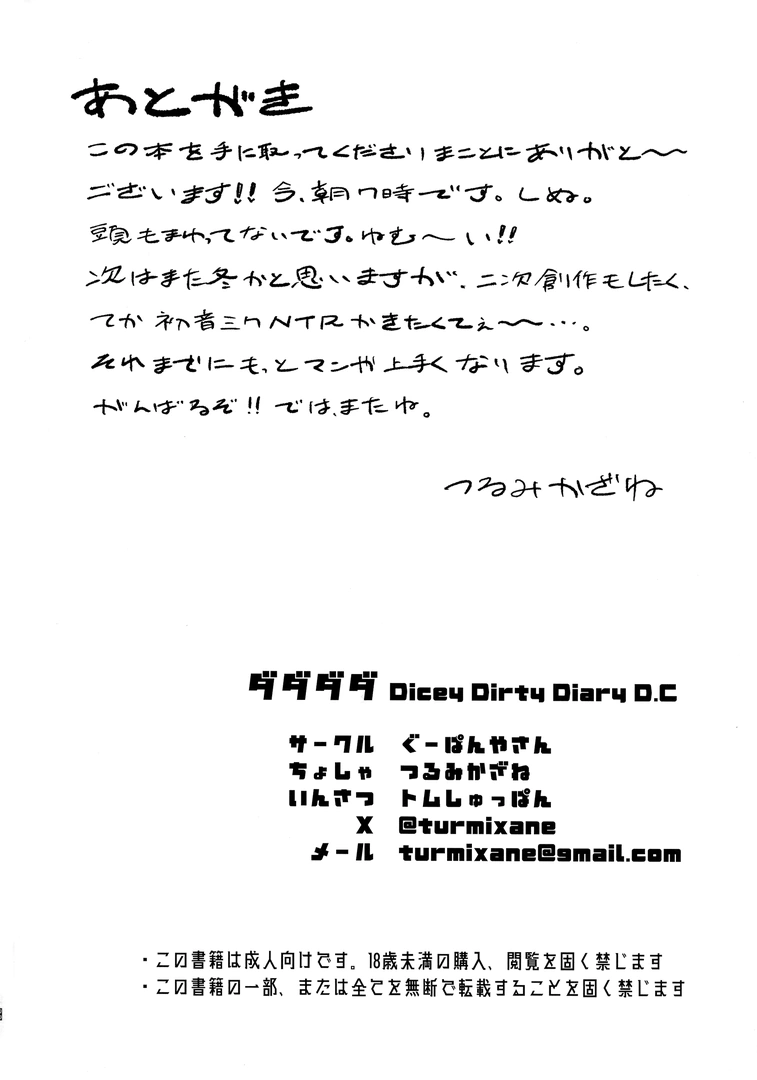 あとがき
この本を手に取ってくださいまことにありがと〜〜
ございます!! 今、朝7時です。しぬ。
頭もまわってないです。ねむ〜い!!
次はまた冬かと思いますが、二次創作もしたく、
てか 初音ミクNTRかきたくてぇ〜〜…。
それまでにもっとマンガ上手くなります。
がんばるぞ!! では、またね。
つるみかざね
ダダダダ Dicey Dirty Diary D.C
サークル ぐーぱんやさん
ちょしゃ つるみかざね
いんさつ トムしゅっぱん
X @turmixane
メール turmixane@gmail.com
・この書籍は成人向けです。18歳未満の購入、閲覧を固く禁じます
・この書籍の一部、または全てを無断で転載することを固く禁じます